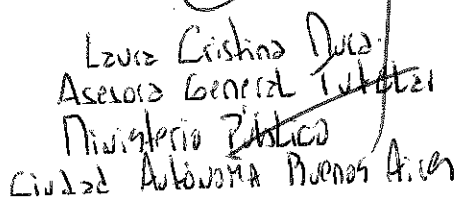 Laura Cristina Musa
Asesora General Tutelar
Ministerio Público
Ciudad Autónoma Buenos Aires